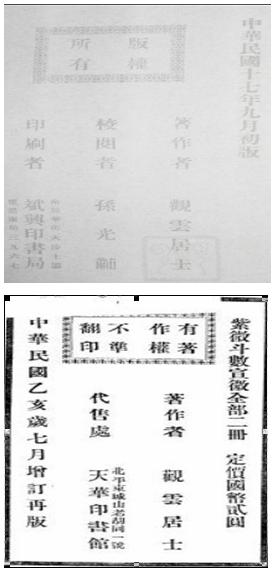 中華民國十七年九月初版
版權
所有
著作者 觀雲居士
校閱者 孫光
印刷者 斌興印書局
紫微斗數宣微全部二冊 定價國幣貳圓
有著
作權
不準
翻印
著作者 觀雲居士
代售處 天華印書館
北平東城山老胡同一號
中華民國乙亥歲七月增訂再版